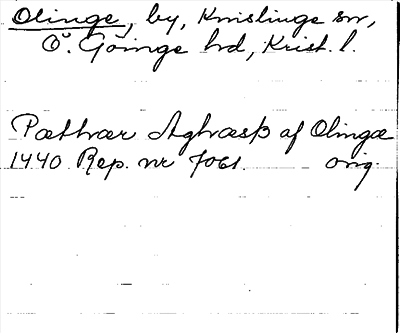 Olinge, by, Knislinge sn,
Ö. Göinge hd, Krist. l.
Pæthær Aghræsß af Olingæ
1440 Rep. nr 7061. orig.